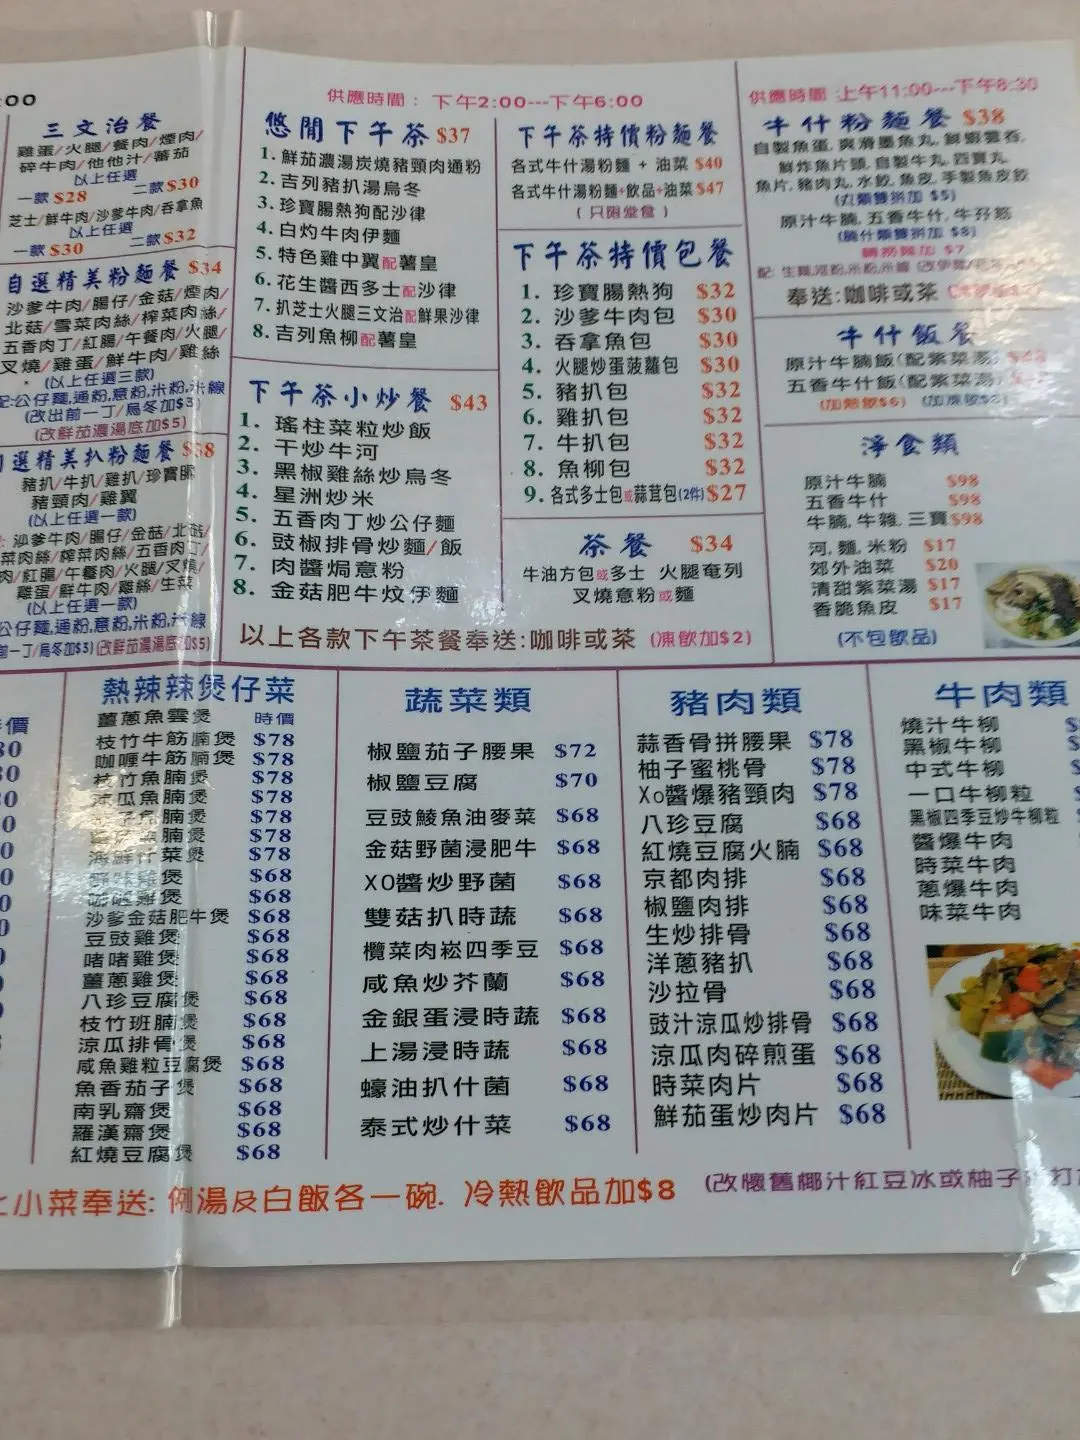 :00
三文治餐
雞蛋/火腿/餐肉/煙肉/
碎牛肉/他他汁/蕃茄
以上任選
一款 $28 二款 $30
芝士/鮮牛肉/沙爹牛肉/吞拿魚
以上任選
一款 $30 二款 $32
自選精美粉麵餐 $34
沙爹牛肉/腸仔/金菇/煙肉/
北菇/雪菜肉絲/榨菜肉絲/
五香肉丁/紅腸/午餐肉/火腿/
叉燒/雞蛋/鮮牛肉/雞絲
(以上任選三款)
配:公仔麵,通粉,意粉,米粉,米線
(改出前一丁/烏冬加$3)
(改鮮茄濃湯底加$5)
選精美扒粉麵餐 $38
豬扒/牛扒/雞扒/珍寶腸
豬頸肉/雞翼
(以上任選一款)
沙爹牛肉/腸仔/金菇/北菇/
菜肉絲/榨菜肉絲/五香肉丁/
肉/紅腸/午餐肉/火腿/叉燒/
雞蛋/鮮牛肉/雞絲/生菜
(以上任選一款)
公仔麵,通粉,意粉,米粉,米線
前一丁/烏冬加$3)(改鮮茄濃湯底加$5)
供應時間：下午2:00---下午6:00
悠閒下午茶 $37
1. 鮮茄濃湯炭燒豬頸肉通粉
2. 吉列豬扒湯烏冬
3. 珍寶腸熱狗配沙律
4. 白灼牛肉伊麵
5. 特色雞中翼配薯皇
6. 花生醬西多士配沙律
7. 扒芝士火腿三文治配鮮果沙律
8. 吉列魚柳配薯皇
下午茶小炒餐 $43
1. 瑤柱菜粒炒飯
2. 干炒牛河
3. 黑椒雞絲炒烏冬
4. 星洲炒米
5. 五香肉丁炒公仔麵
6. 豉椒排骨炒麵/飯
7. 肉醬焗意粉
8. 金菇肥牛炆伊麵
下午茶特價粉麵餐
各式牛什湯粉麵 + 油菜 $40
各式牛什湯粉麵+飲品+油菜 $47
(只限堂食)
下午茶特價包餐
1. 珍寶腸熱狗 $32
2. 沙爹牛肉包 $30
3. 吞拿魚包 $30
4. 火腿炒蛋菠蘿包 $30
5. 豬扒包 $32
6. 雞扒包 $32
7. 牛扒包 $32
8. 魚柳包 $32
9. 各式多士包或蒜茸包(2件) $27
茶餐 $34
牛油方包或多士 火腿奄列
叉燒意粉或麵
以上各款下午茶餐奉送:咖啡或茶 (凍飲加$2)
供應時間 上午11:00---下午8:30
牛什粉麵餐 $38
自製魚蛋,爽滑墨魚丸,鮮蝦雲吞,
鮮炸魚片頭,自製牛丸,四寶丸
魚片,豬肉丸,水餃,魚皮,手製魚皮餃
(丸類雙拼加 $5)
原汁牛腩,五香牛什,牛孖筋
(腩什類雙拼加 $8)
奉送:咖啡或茶
牛什飯餐
原汁牛腩飯(配紫菜湯)
五香牛什飯(配紫菜湯)
(加熱飲$6)
淨食類
原汁牛腩 $98
五香牛什 $98
牛腩,牛雜,三寶 $98
河,麵,米粉 $17
郊外油菜 $20
清甜紫菜湯 $17
香脆魚皮 $17
(不包飲品)
價
熱辣辣煲仔菜
薑蔥魚雲煲 時價
枝竹牛筋腩煲 $78
咖喱牛筋腩煲 $78
枝竹魚腩煲 $78
涼瓜魚腩煲 $78
子魚腩煲 $78
魚腩煲 $78
海鮮什菜煲 $78
雞煲 $68
雞煲 $68
沙爹金菇肥牛煲 $68
豆豉雞煲 $68
啫啫雞煲 $68
薑蔥雞煲 $68
八珍豆腐煲 $68
枝竹班腩煲 $68
涼瓜排骨煲 $68
咸魚雞粒豆腐煲 $68
魚香茄子煲 $68
南乳齋煲 $68
羅漢齋煲 $68
紅燒豆腐煲 $68
蔬菜類
椒鹽茄子腰果 $72
椒鹽豆腐 $70
豆豉鯪魚油麥菜 $68
金菇野菌浸肥牛 $68
XO醬炒野菌 $68
雙菇扒時蔬 $68
欖菜肉崧四季豆 $68
咸魚炒芥蘭 $68
金銀蛋浸時蔬 $68
上湯浸時蔬 $68
蠔油扒什菌 $68
泰式炒什菜 $68
豬肉類
蒜香骨拼腰果 $78
柚子蜜桃骨 $78
Xo醬爆豬頸肉 $78
八珍豆腐 $68
紅燒豆腐火腩 $68
京都肉排 $68
椒鹽肉排 $68
生炒排骨 $68
洋蔥豬扒 $68
沙拉骨 $68
豉汁涼瓜炒排骨 $68
涼瓜肉碎煎蛋 $68
時菜肉片 $68
鮮茄蛋炒肉片 $68
牛肉類
燒汁牛柳
黑椒牛柳
中式牛柳
一口牛柳粒
黑椒四季豆炒牛柳粒
醬爆牛肉
時菜牛肉
蔥爆牛肉
味菜牛肉
小菜奉送: 例湯及白飯各一碗. 冷熱飲品加$8
(改懷舊椰汁紅豆冰或柚子